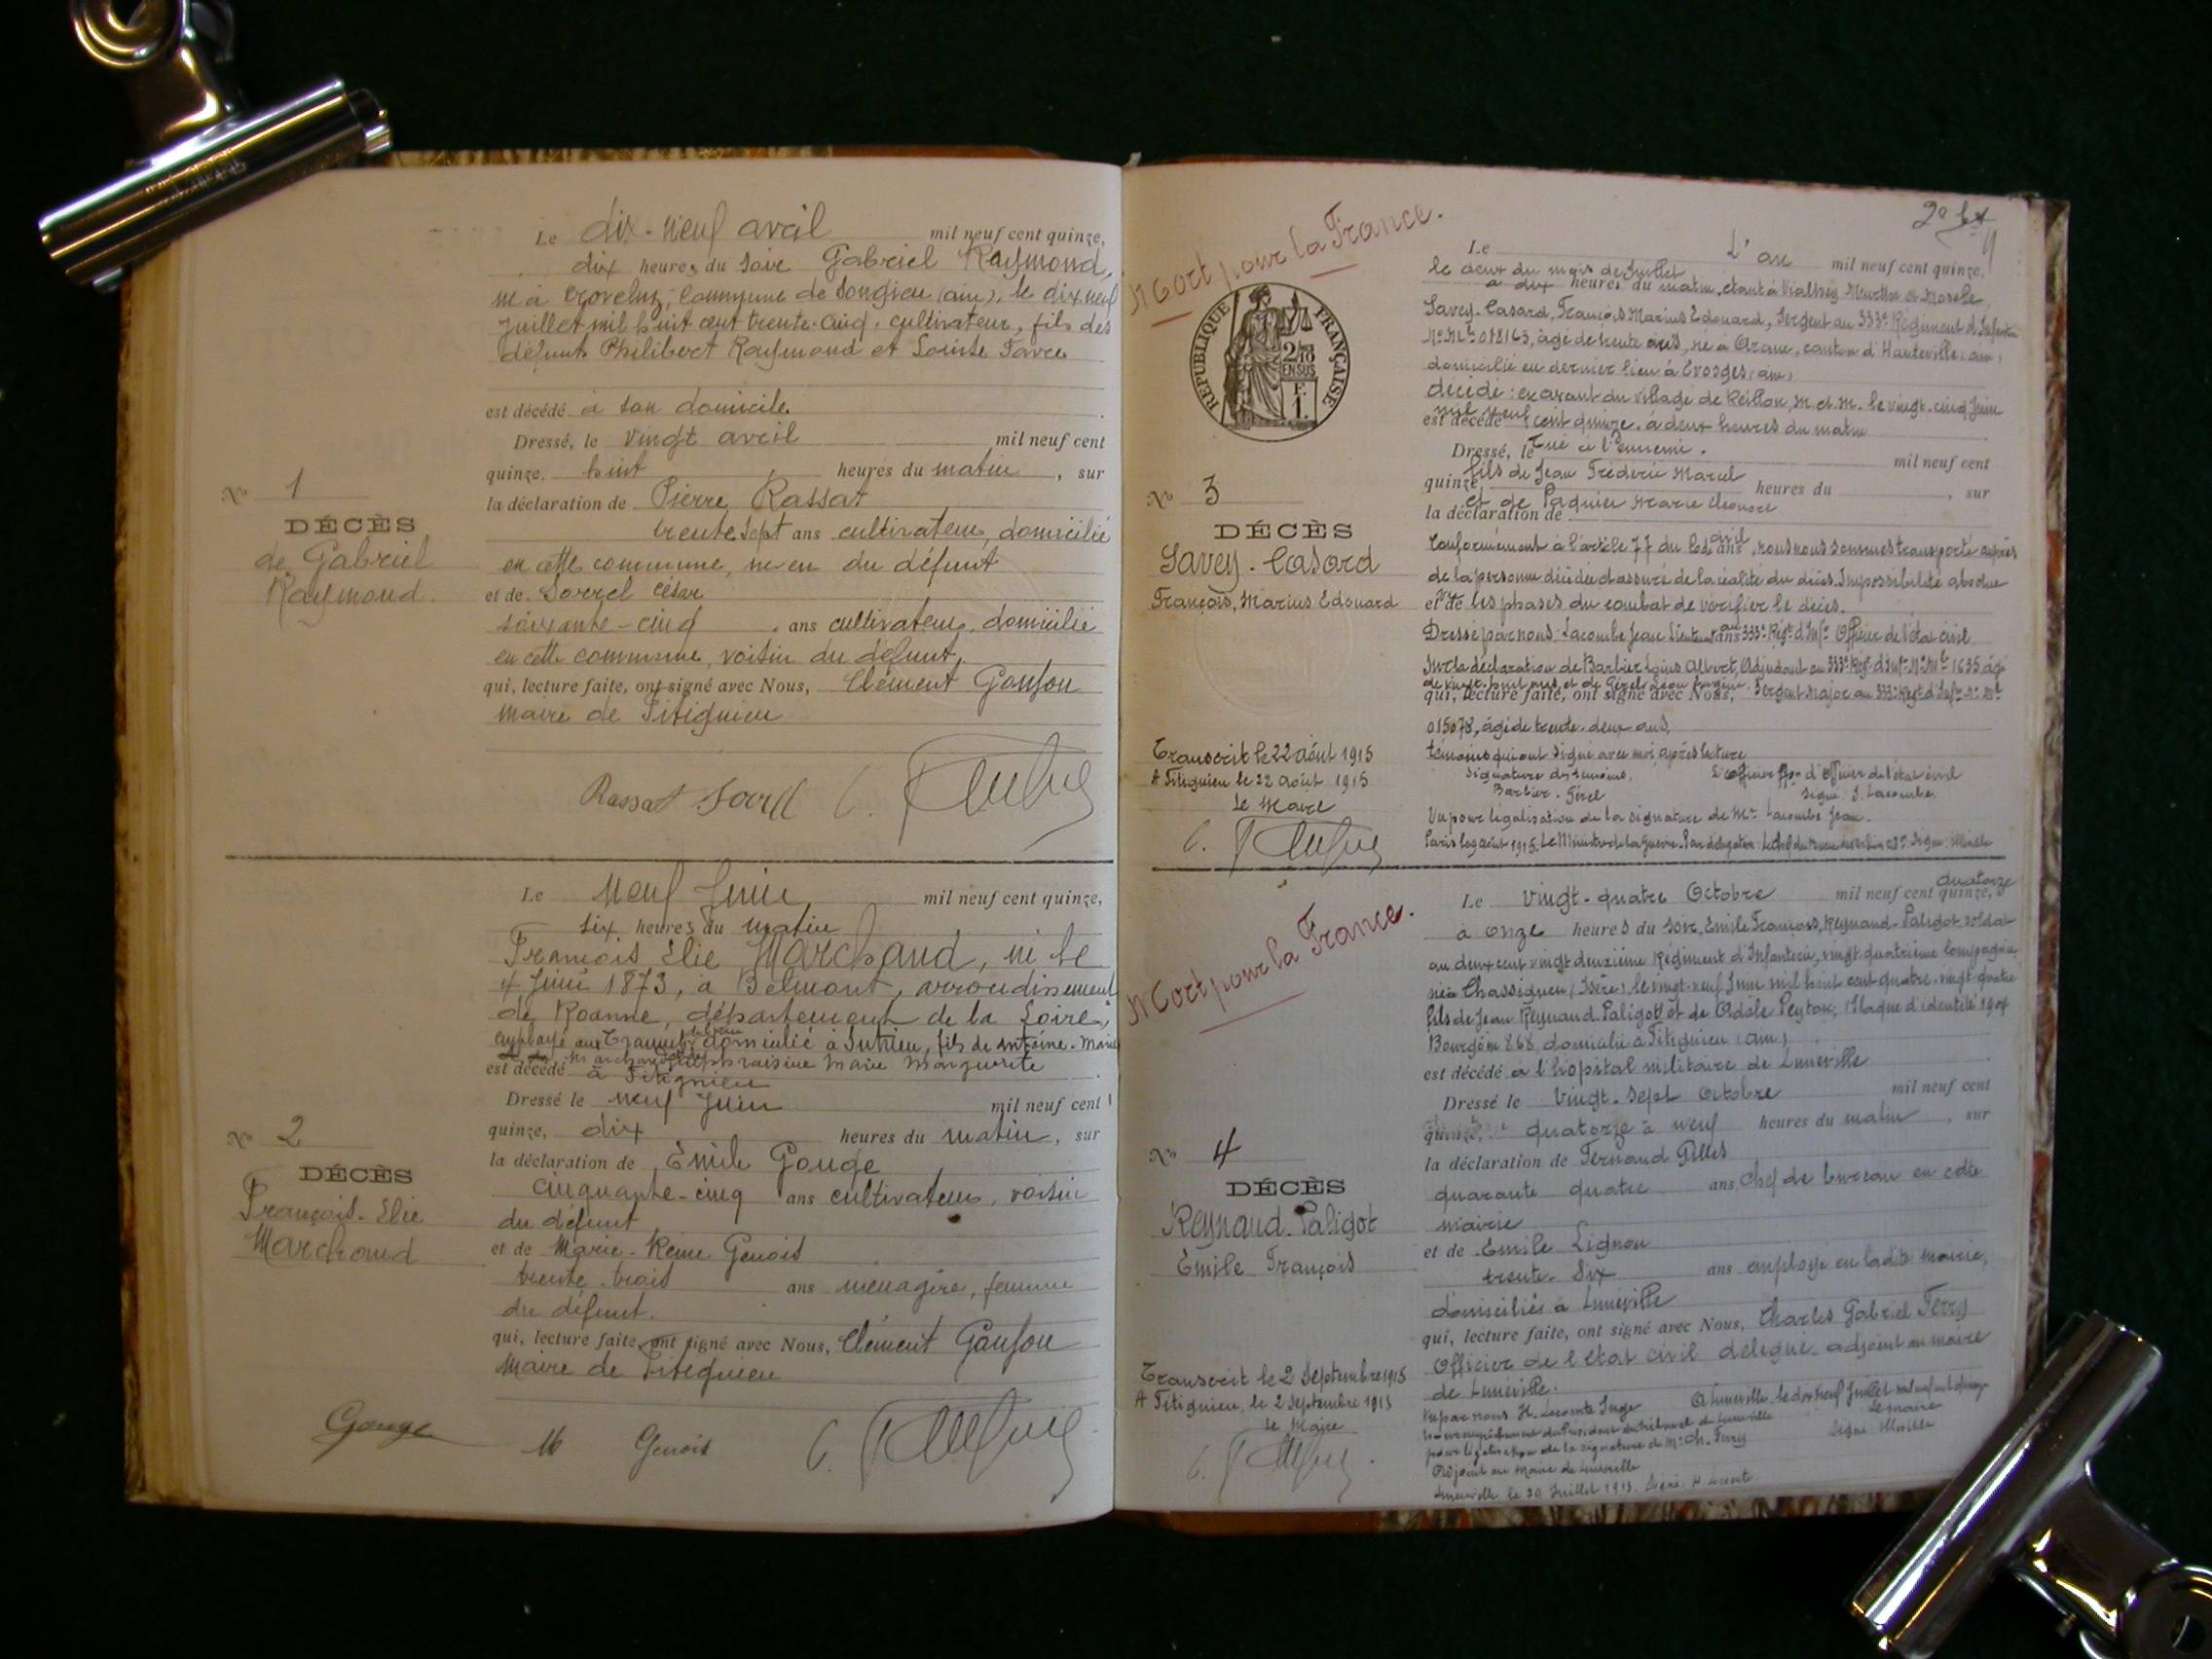 Le dix-neuf avril mil neuf cent quinze,
dix heures du soir Gabriel Raymond,
né à commune de Songieu (ain), le dix neuf
Juillet mil huit cent trente-cinq, cultivateur, fils des
défunts Philibert Raymond et Louise Favre
est décédé à son domicile.
Dressé, le vingt avril mil neuf cent
quinze. huit heures du matin, sur
la déclaration de Pierre Rassat
trente sept ans cultivateur, domicilié
en cette commune, neveu du défunt
et de Sorrel César
soixante-cinq ans cultivateur, domicilié
en cette commune, voisin du défunt.
qui, lecture faite, ont signé avec Nous, Clément
maire de
No 1
DÉCÈS
de Gabriel
Raymond.
Rassat Sorrel C.
Le Neuf Juin mil neuf cent quinze,
six heures du matin
François Elie Marchand, né le
4 Juin 1873, à Belmont, arrondissement
de Roanne, département de la Loire,
employé aux domicilié à fils de Antoine-Marie
Marchand Marie Marguerite
est décédé à
Dressé le neuf Juin mil neuf cent
quinze, dix heures du matin, sur
la déclaration de Emile Gouge
cinquante-cinq ans cultivateur, voisin
du défunt
et de Marie-Reine Genois
trente-trois ans ménagère, femme
du défunt.
qui, lecture faite, ont signé avec Nous, Clément
Maire de
No 2
DÉCÈS
François-Elie
Marchand
Gouge M Genois C.
2e
Mort pour la France.
REPUBLIQUE FRANÇAISE
2/10
EN SUS
F.
1.
Le L'an mil neuf cent quinze,
le deux du mois de Juillet
à dix heures du matin, étant à Meurthe et Moselle
Savey-Casard, François Marius Edouard, Sergent au 333e Régiment d'Infanterie
No Mle 018163, âgé de trente ans, né à canton d'Hauteville (ain)
domicilié en dernier lieu à Evosges (ain)
décédé: en avant du village de Reillon, M. et M. le vingt-cinq Juin
mil neuf
est décédé cent quinze, à deux heures du matin
Dressé, le Tué à l'ennemi. mil neuf cent
fils de Jean Fréderic Marcel
quinze, heures du , sur
et de Marie
la déclaration de
Conformément à l'article 77 du Code civil, nous nous sommes transporté auprès
de la personne décédée et assuré de la réalité du décès. Impossibilité absolue
et de les phases du combat de vérifier le décès.
Dressé par nous Lacombe Jean au 333e Regt d'Infie Officier de l'état civil
Sur la déclaration de Barbier Louis Albert, Adjudant au 333e Regt d'Infie No Mle 1635 âgé
de vingt-huit ans et de
qui, lecture faite, ont signé avec Nous, Sergent Major au 333e Regt d'Infie No Mle
015078, âgé de trente-deux ans,
témoins qui ont signé avec moi après lecture
Signature des témoins, L'officier d'Officier de l'état civil
Barbier - Signé: J. Lacombe
Vu pour légalisation de la signature de Mr Lacombe Jean.
Paris le 9 août 1915. Le Ministre de la Guerre. Par délégation
No 3
DÉCÈS
Savey-Casard
François, Marius Edouard
Transcrit le 22 août 1915
A le 22 août 1915
Le Maire
C.
Mort pour la France.
Le vingt-quatre Octobre mil neuf cent quinze, quatorze
à onze heures du soir, Emile François, Reynaud-Paligot soldat
au deux cent vingt deuxième Régiment d'Infanterie, vingt quatrième Compagnie
né à Chassignieu (Isère) le vingt-neuf Juin mil huit cent quatre-vingt quatre
fils de Jean Reynaud-Paligot et de Adèle Peyton, (Plaque d'identité 1904
Bourgoin 868, domicilié à (ain)
est décédé à l'hôpital militaire de Lunéville
Dressé le vingt-sept Octobre mil neuf cent
quinze, quatorze à neuf heures du matin, sur
la déclaration de Fernand Gilles
quarante quatre ans, Chef de bureau en cette
mairie
et de Emile Lignon
trente-six ans employé en ladite mairie,
domiciliés à Lunéville
qui, lecture faite, ont signé avec Nous, Charles Gabriel Ferry
Officier de l'état civil délégué adjoint au maire
de Lunéville.
Vu par nous H. Lecomte Juge A Lunéville, le dix neuf Juillet mil neuf cent quinze
Président du tribunal de Lunéville Le maire
pour légalisation de la signature de Mr Ch. Ferry Signé:
Adjoint au Maire de Lunéville
Lunéville le 20 Juillet 1915. Signé: H. Lecomte
No 4
DÉCÈS
Reynaud-Paligot
Emile François
Transcrit le 2 Septembre 1915
A le 2 Septembre 1915
Le Maire
C.